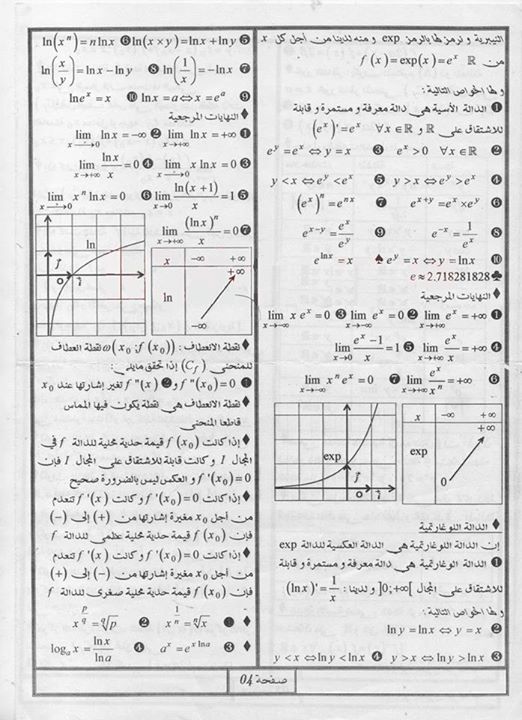 النيبيرية و نرمز لها بالرمز exp و منه لدينا من أجل كل x
من ℝ f(x)=exp(x)=e^x
ولها الخواص التالية :
❶ الدالة الأسية هي دالة معرفة و مستمرة و قابة
للاشتقاق على ℝ و (e^x)'=e^x ∀x∈ℝ
❷ e^x>0 ∀x∈ℝ ❸ e^y=e^x⇔y=x
❹ y>x⇔e^y>e^x ❺ y<x⇔e^y<e^x
❻ e^{x+y}=e^x×e^y ❼ (e^x)^n=e^{nx}
❽ e^{-x}=1/e^x ❾ e^{x-y}=e^x/e^y
❿ e^y=x⇔y=ln x ♠ e^{ln x}=x
♣ e≈2.718281828
♦ النهايات المرجعية
❶ lim_{x→+∞} e^x=+∞ ❷ lim_{x→-∞} e^x=0 ❸ lim_{x→-∞} x e^x=0
❹ ❺ lim_{x→0} (e^x-1)/x=1
❻ lim_{x→+∞} e^x/x^n=+∞ ❼ lim_{x→-∞} x^n e^x=0
exp j o i
x -∞ +∞
exp 0 +∞
♦ الدالة اللوغارتمية
إن الدالة اللوغارتمية هي الدالة العكسية للدالة exp
❶ الدالة الوغارتمية هي دالة معرفة و مستمرة و قابلة
للاشتقاق على المجال ]0;+∞[ و لدينا : (ln x)'=1/x
ولها الخواص التالية :
❷ ln y=ln x⇔y=x
❸ y>x⇔ln y>ln x ❹ y<x⇔ln y<ln x
❺ ln(x×y)=ln x+ln y ❻ ln(x^n)=n ln x
❼ ln(1/x)=-ln x ❽ ln(x/y)=ln x-ln y
❾ ln x=a⇔x=e^a ❿ ln e^x=x
♦ النهايات المرجعية
❶ lim_{x→+∞} ln x=+∞ ❷ lim_{x→0} ln x=-∞
❸ lim_{x→0} x ln x=0 ❹ lim_{x→+∞} ln x/x=0
❺ lim_{x→0} ln(x+1)/x=1 ❻ lim_{x→0} x^n ln x=0
❼ lim_{x→+∞} (ln x)^n/x=0
ln j o i
x -∞ +∞
ln -∞ +∞
♦ نقطة الانعطاف : ω(x₀;f(x₀)) نقطة انعطاف
للمنحنى (C_f) إذا تحقق مايلي :
❶ f''(x₀)=0 و ❷ f''(x) تغير إشارتها عند x₀
♦ نقطة الانعطاف هي نقطة يكون فيها المماس
قاطعا المنحنى
♦ إذا كانت f(x₀) قيمة حدية محلية للدالة f في
المجال I و كانت قابلة للاشتقاق على المجال I فإن
f'(x₀)=0 و العكس ليس بالضرورة صحيح
♦ إذا كانت f'(x₀)=0 و كانت f'(x) تنعدم
من أجل x₀ مغيرة إشارتها من (+) إلى (−)
فإن f(x₀) قيمة حدية محلية عظمى للدالة f
♦ إذا كانت f'(x₀)=0 و كانت f'(x) تنعدم
من أجل x₀ مغيرة إشارتها من (−) إلى (+)
فإن f(x₀) قيمة حدية محلية صغرى للدالة f
♦ ❶ x^{1/n}=ⁿ√x ❷ x^{p/q}=q√p
❸ a^x=e^{x ln a} ❹ log_a x=ln x/ln a
صفحة 04